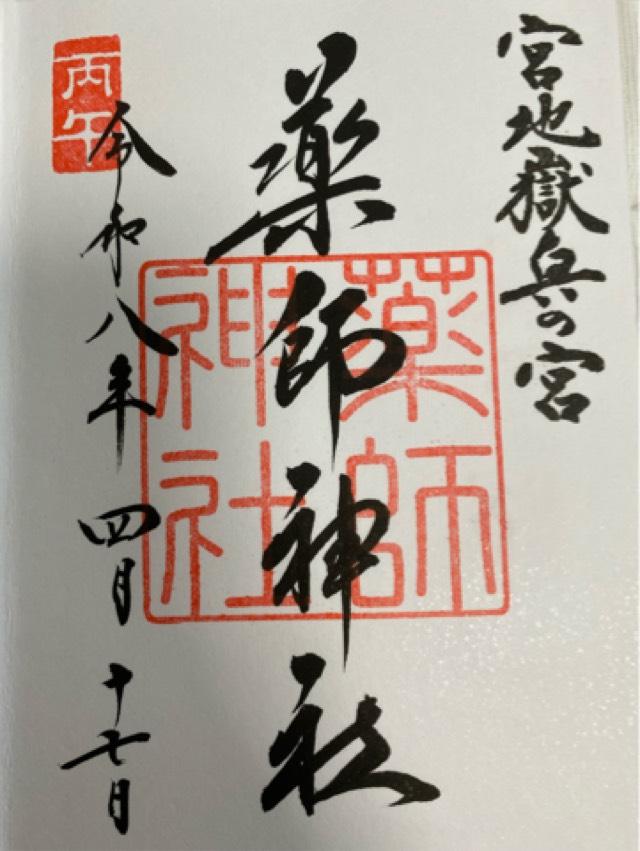 宮地嶽兵の宮
薬師神社
薬師
神社
丙午
令和八年 四月 十七日